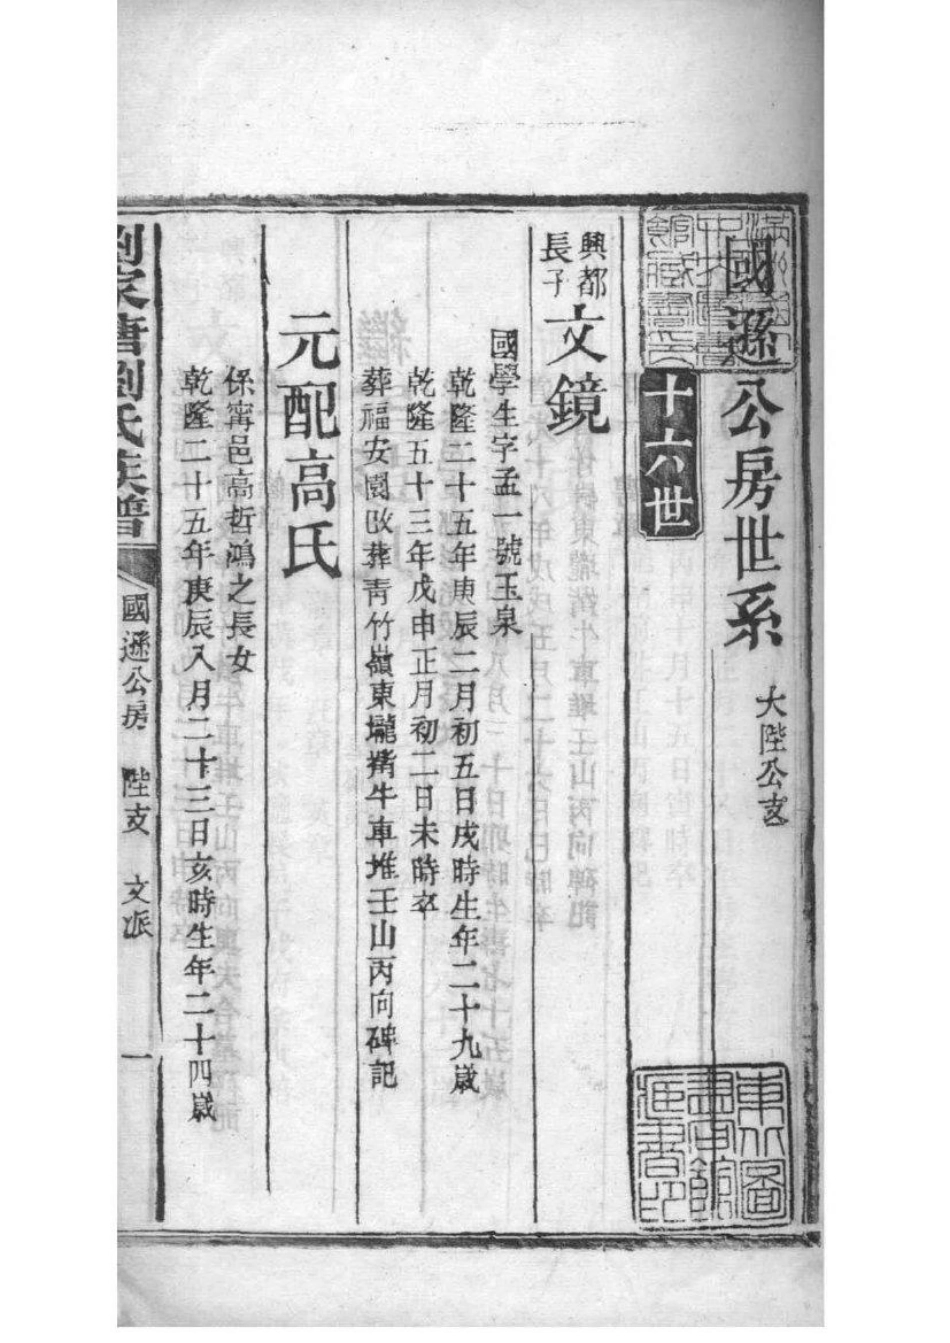 國遜公房世系 大陛公支
十六世
興都長子 文鏡
國學生字孟一號玉泉
乾隆二十五年庚辰二月初五日戌時生年二十九歲
乾隆五十三年戊申正月初二日未時卒
葬福安園改葬靑竹嶺東壠犕牛車堆壬山丙向碑記
元配高氏
係寗邑高哲鴻之長女
乾隆二十五年庚辰入月二十三日亥時生年二十四歲
劉家唐劉氏族譜 國遜公房 陛支 文派 一